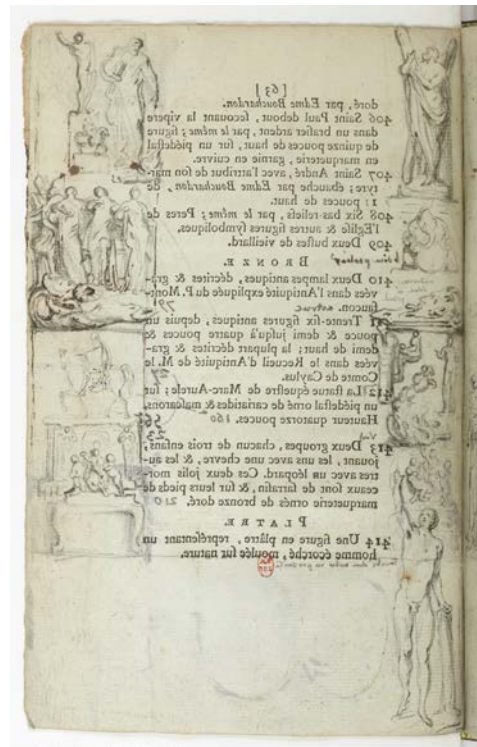 [ 63 ]
doré, par Edme Bouchardon.
406 Saint Paul debout, ſecouant la vipere
dans un braſier ardent, par le même; figure
de quinze pouces de haut, ſur un piédeſtal
en marqueterie, garnie en cuivre.
407 Saint André, avec l'attribut de ſon mar-
tyre; ébauche par Edme Bouchardon, de
11 pouces de haut.
408 Six bas-reliefs, par le même; Peres de
l'Egliſe & autres figures ſymboliques.
409 Deux buſtes de vieillard.
BRONZE.
410 Deux lampes antiques, décrites & gra-
vées dans l'Antiquité expliquée du P. Mont-
faucon.
411 Trente-ſix figures antiques, depuis un
pouce & demi juſqu'à quatre pouces &
demi de haut; la plupart décrites & gra-
vées dans le Recueil d'Antiquité de M. le
Comte de Caylus.
412 La ſtatue équeſtre de Marc-Aurele; ſur
un piédeſtal orné de cariatides & maſcarons.
Hauteur quatorze pouces. 160
413 Deux grouppes, chacun de trois enfans,
jouant, les uns avec une chevre, & les au-
tres avec un léopard. Ces deux jolis mor-
ceaux ſont de ſarraſin, & ſur leurs pieds de
marqueterie ornés de bronze doré. 210
PLATRE.
414 Une figure en plâtre, repréſentant un
homme écorché, moulée ſur nature.